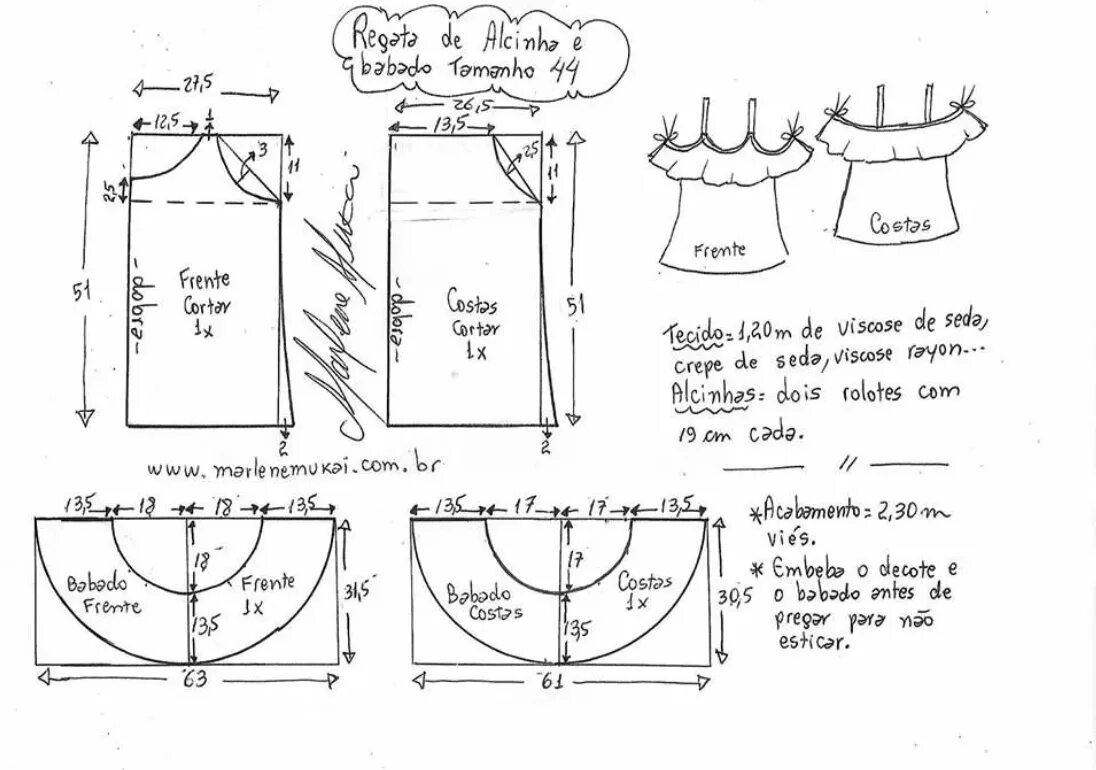 Regata de Alcinha e
babado Tamanho 44
27,5
12,5
1
3
11
2,5
51
Frente
Cortar
1x
-dobra-
2
26,5
13,5
2,5
11
51
Costas
Cortar
1x
-dobra-
2
Marlene Mukai
www.marlenemukai.com.br
Frente
Costas
Tecido=1,20m de viscose de seda,
crepe de seda, viscose rayon...
Alcinhas= dois rolotes com
19 cm cada.
13,5 18 18 13,5
18
Babado
Frente
Frente
1x
13,5
31,5
63
13,5 17 17 13,5
17
Babado
Costas
Costas
1x
13,5
30,5
61
*Acabamento=2,30m
viés.
* Embeba o decote e
o babado antes de
pregar para não
esticar.